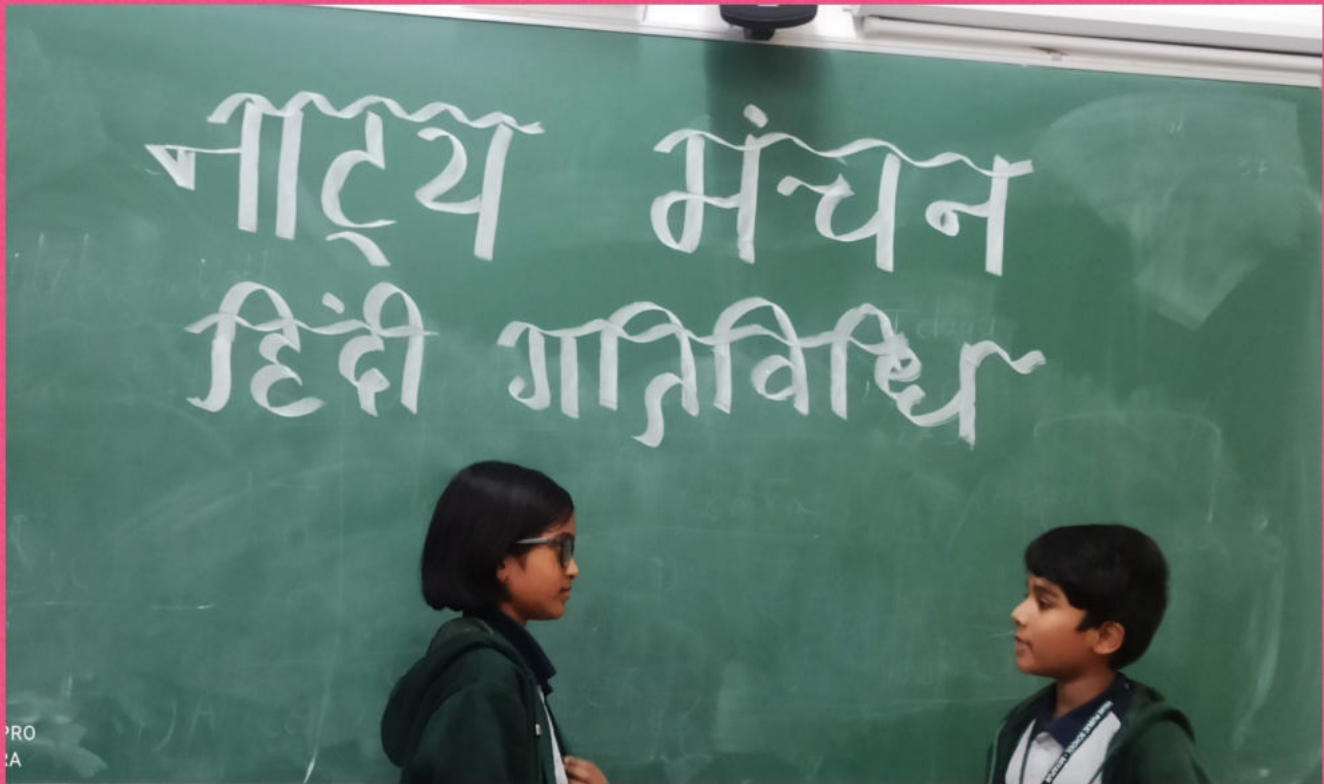 नाट्य मंचन
हिंदी गतिविधि
PRO
RA